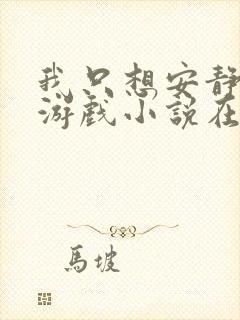 我只想安静
游戏小說在
馬坡